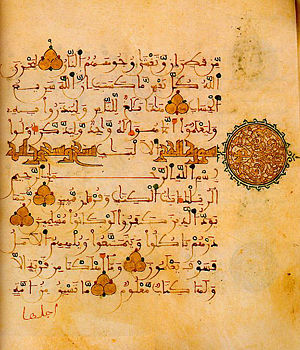 من قطران وتغشى وجوههم النار ليجزي
الله كل نفس ما كسبت ان الله سريع
الحساب هذا بلغ للناس ولينذروا به
وليعلموا انما هو اله وحد وليذكر اولوا
الالبب
بسم الله الرحمن الرحيم
الر تلك ايت الكتب وقران مبين ربما
يود الذين كفروا لو كانوا مسلمين
ذرهم ياكلوا ويتمتعوا ويلههم الامل
فسوف يعلمون وما اهلكنا من قرية الا
ولها كتاب معلوم ما تسبق من امة
اجلها